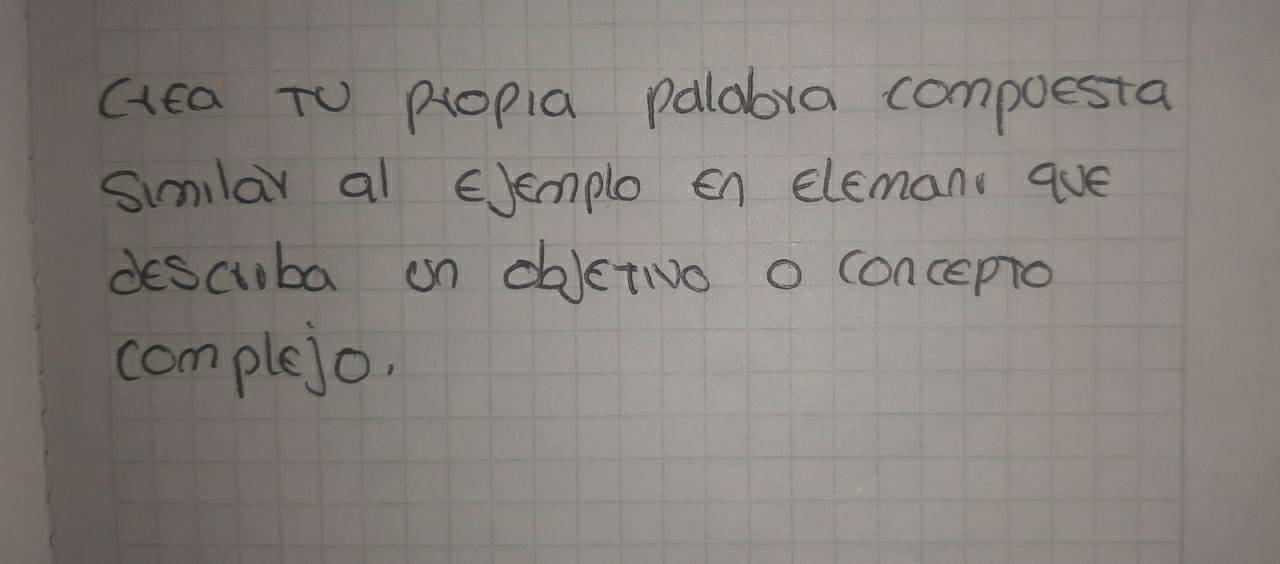 Crea tu propia palabra compuesta
similar al ejemplo en eleman. que
describa un objetivo o concepto
complejo.